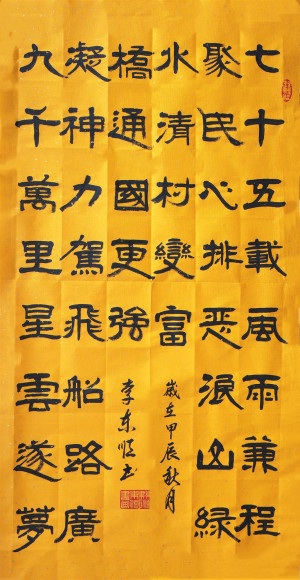 七十五載風雨兼程
聚民心排惡浪山綠
水清村變富
九千萬里星雲遂夢
凝神力駕飛船路廣
橋通國更強
歲在甲辰秋月
李东順书